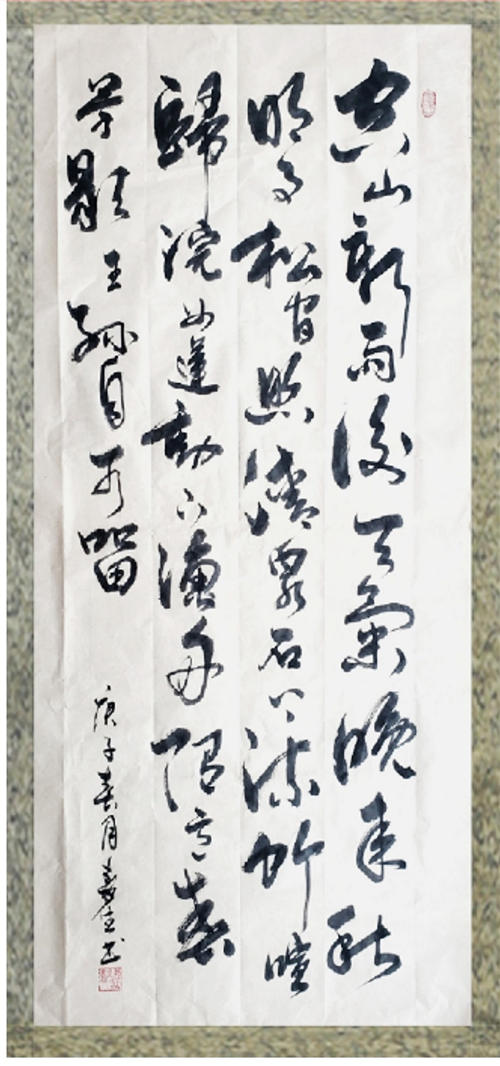 空山新雨後天氣晚來秋
明月松間照清泉石上流竹喧
歸浣女蓮動下漁舟隨意春
芳歇王孫自可留
庚子春月書